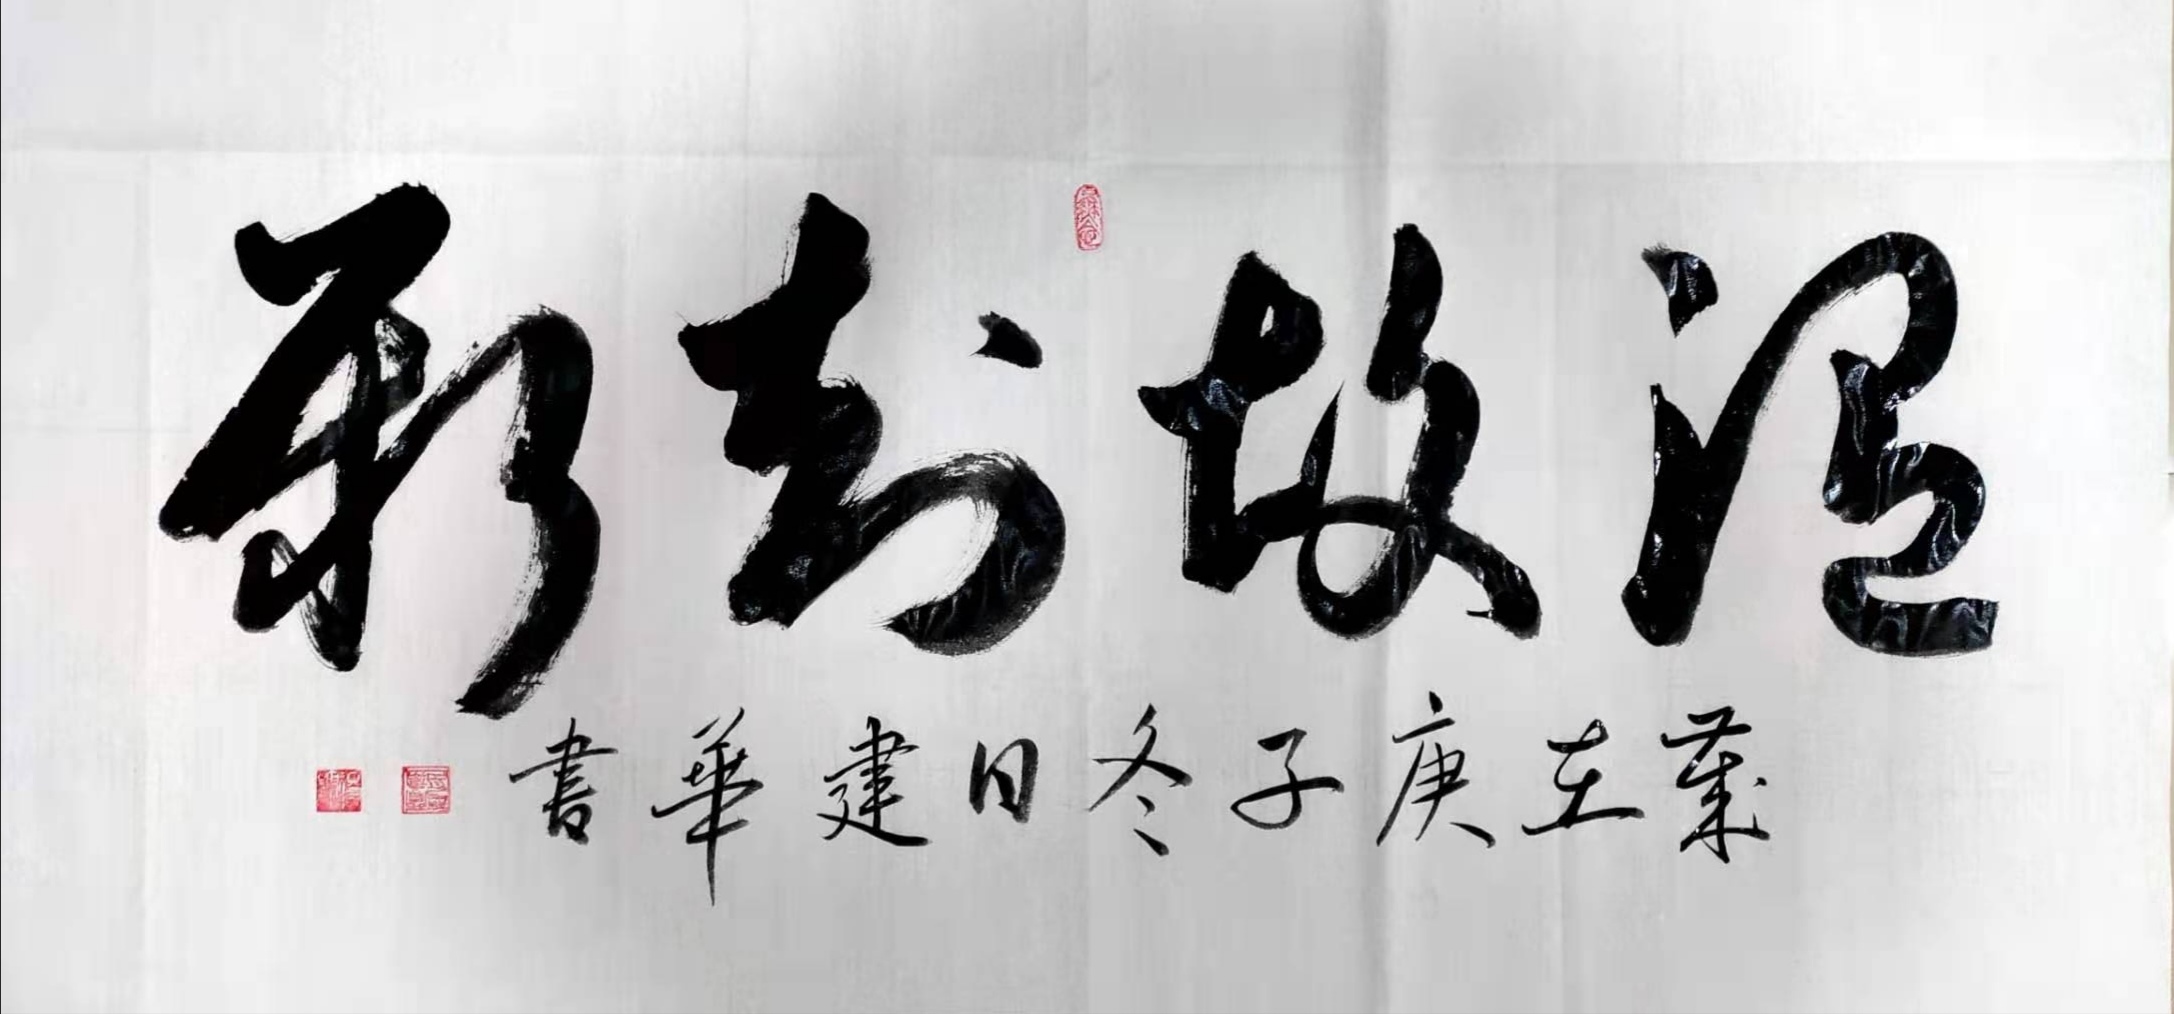 温故知新
歲在庚子冬日建華書